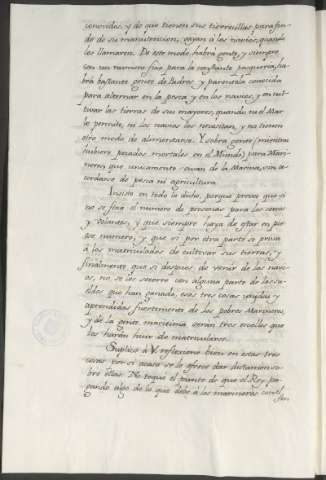 conocidas, y de que tienen sus tierrecillas para fun-
do de su manutencion, vayan à los navios, quando
les llamaren. De este modo, habrà gente, y siempre
con un numero fixo, para la constante
brà bastante gente de Padres, y parentela conocida
para alternar en la pesca, y en los navios, y en cul-
tivar las tierras de sus mayores, quando, ni el Mar
le permite, ni los navios los necesitan, y no tienen
otro modo de alimentarse. Y sobra gente (mientras
hubiere pecados mortales en el Mundo) para Mari-
neros, que unicamente vivan de la Marina, sin a-
cordarse de pesca ni agricultura.
Insisto en todo lo dicho, porque preveo que si
no se fixa el numero de personas para las
y Volantes, y que siempre haya de estar en pie
ese numero, y que si por otra parte se priva
à los matriculados de cultivar sus tierras, y
finalmente que si despues de venir de los navi-
os, no se les socorre con alguna parte de los su-
eldos que han ganado, esas tres cosas
y aprendidas fuertemente de los pobres Marineros,
y de la gente maritima seran tres escollos que
los haràn huir de matricularse.
Suplico à V. reflexione bien en estas tres
cosas por si acaso se le ofrece dar dictamen so-
bre ellas. No toque el punto de que el Rey, pa-
gando algo de lo que debe à los marineros